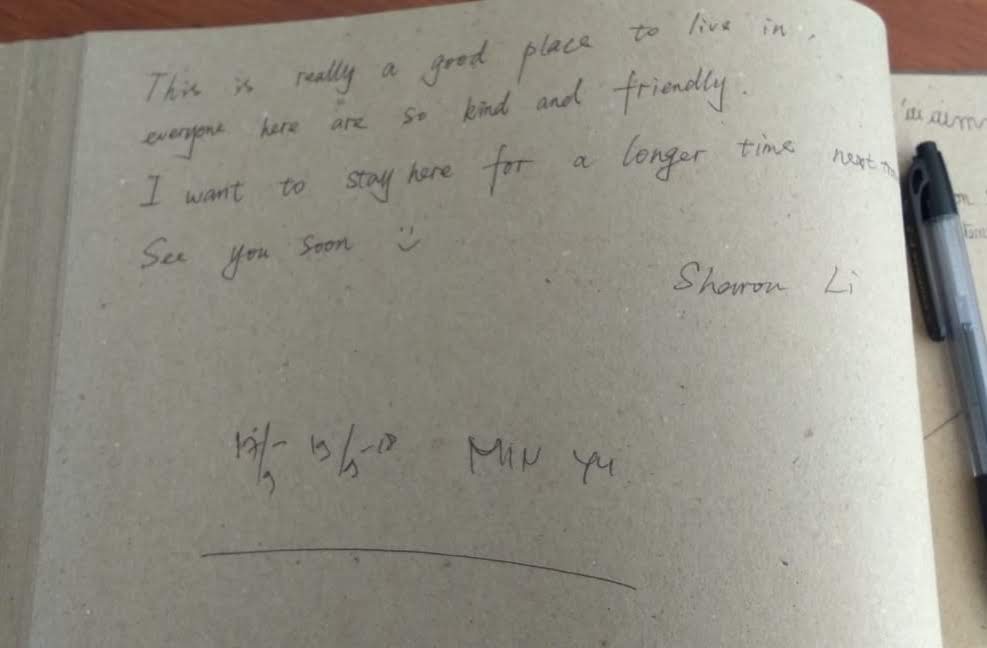 This is really a good place to live in.
everyone here are so kind and friendly.
I want to stay here for a longer time next
See you soon :)
Sharon Li
17/9- 19/9-18 MIN YU